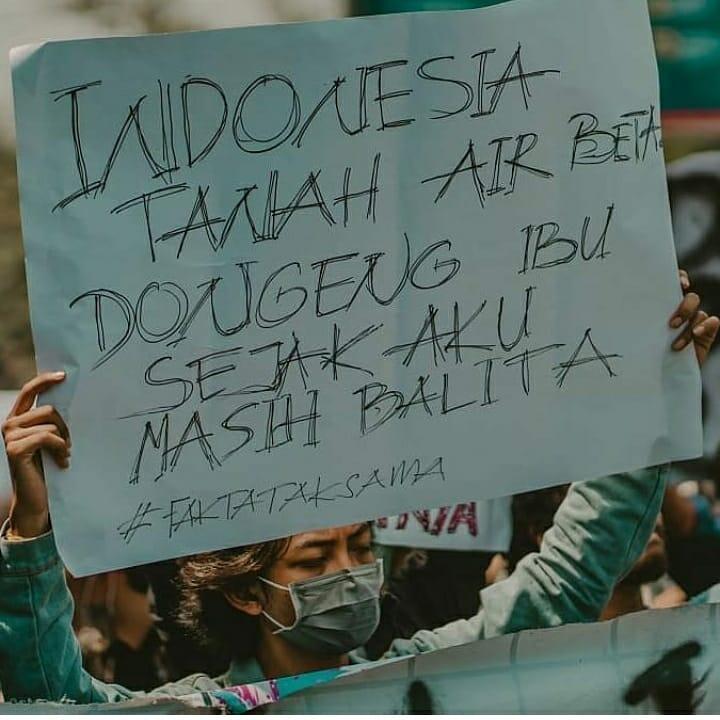 INDONESIA
TANAH AIR BETA
DONGENG IBU
SEJAK AKU
MASIH BALITA
#FAKTATAKSAMA